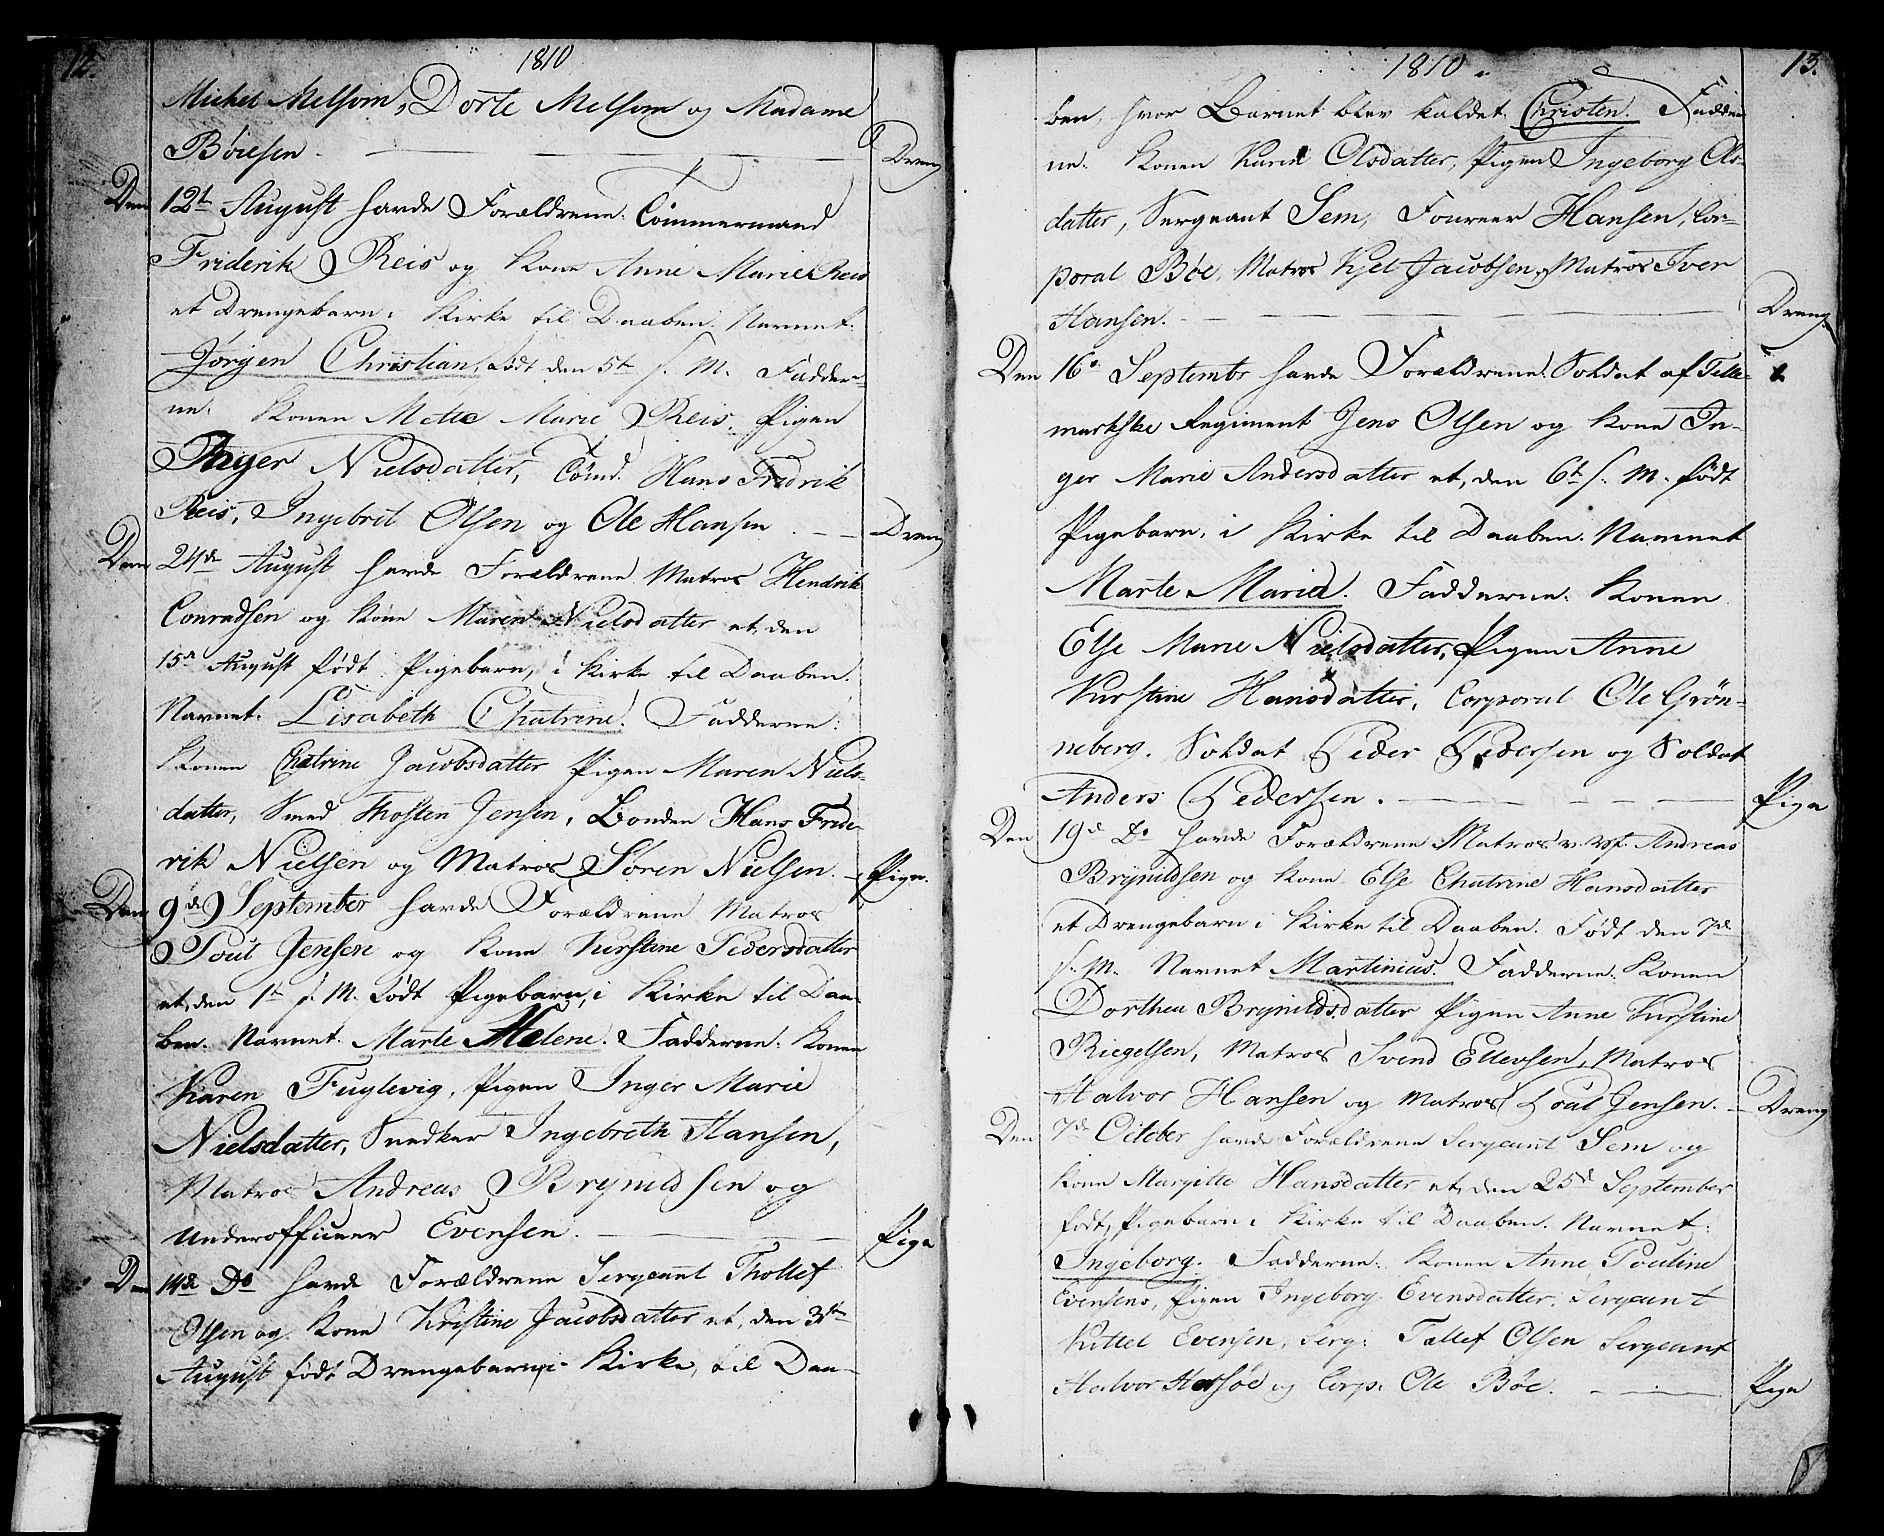 12.
1810
Michel Melsom, Dorte Melsom og Madame
Böiesen. Dreng
Den 12t August havde Forældrene: Tömmermand
Friderik Reis og Kone Anne Marie Reis
et Drengebarn i Kirke til Daaben. Navnet:
Jörgen Christian, Födt den 5t s. M. Fadder-
ne: Konen Mette Marie Reis, Pigen
Inger Nielsdatter, Tömd. Hans Fredrik
Reis, Ingebret Olsen og Ole Hansen. Dreng
Den 24de August havde Forældrene Matros Hendrik
Conradsen og Kone Maren Nielsdatter et, den
15de August födt Pigebarn, i Kirke til Daaben.
Navnet: Lisabeth Chatrine. Fadderne:
Konen Chatrine Jacobsdatter Pigen Maren Niels-
datter, Smed Thosten Jensen, Bonden Hans Fride-
rik Nielsen og Matros Sören Nielsen. Pige.
Den 9de September havde Forældrene Matros
Poul Jensen og Kone Kirstine Pedersdatter
et, den 1te s. M. Födt Pigebarn, i Kirke til Daa-
ben. Navnet: Marte Helene. Fadderne: Konen
Karen Fuglevig, Pigen Inger Marie
Nielsdatter, Snedker Ingebreth Hansen,
Matros Andreas Brynildsen og
Underofficeer Evensen. Pige
Den 14de Do havde Forældrene Sergeant Thollef
Olsen og Kone Kristine Jacobsdatter et, den 31te
August födt Drengebarn, i Kirke, til Daa-
13.
1810
ben, hvor Barnet blev kaldet: Christen. Fadder-
ne: Konen Karen Olsdatter, Pigen Ingeborg Ols-
datter, Sergeant Sem, Foureer Hansen, Cor-
poral Böe, Matros Kjel Jacobsen, Matros Iver
Hansen. Dreng
Den 16de Septembr havde Forældrene: Soldat af Telle-
markske Regiment Jens Olsen og Kone In-
ger Marie Andersdatter et, den 6t s. M. födt
Pigebarn, i Kirke til Daaben. Navnet
Marte Maria. Fadderne: Konen
Else Marie Nielsdatter, Pigen Anne
Kirstine Hansdatter, Corporal Ole Grön-
neberg. Soldat Peder Pedersen og Soldat
Anders Pedersen. Pige
Den 19de Do havde Forældrene Matros Andreas
Brynildsen og Kone Else Chatrine Hansdatter
et Drengebarn i Kirke til Daaben. Födt den 7de
s. M. Navnet Martinius. Fadderne: Konen
Dorthea Brynildsdatter Pigen Anne Kirstine
Riegelsen, Matros Svend Ellevsen, Matros
Halvor Hansen og Matros Poul Jensen. Dreng
Den 7de October havde Forældrene Sergeant Sem og
Kone Margitte Hansdatter et, den 25de September
födt, Pigebarn i Kirke til Daaben. Navnet:
Ingeborg. Fadderne: Konen Anne Pouline
Evensens, Pigen Ingeborg Evensdatter, Sergeant
Kittel Evensen, Serg: Tallef Olsen Sergeant
Halvor Harsöe og Corp: Ole Böe. Pige